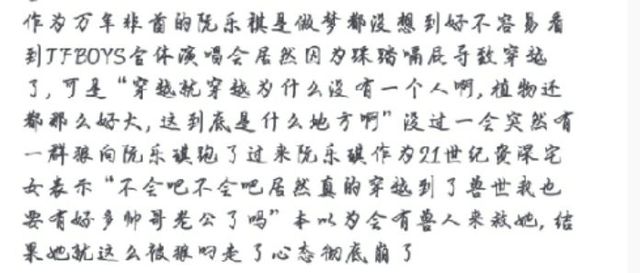 作为万年非酋的阮乐祺是做梦都没想到好不容易看
到TFBOYS合体演唱会居然因为踩踏嗝屁导致穿越
了,可是“穿越就穿越为什么没有一个人啊,植物还
都那么好大,这到底是什么地方啊”没过一会突然有
一群狼向阮乐琪跑了过来阮乐琪作为21世纪资深宅
女表示“不会吧不会吧居然真的穿越到了兽世我也
要有好多帅哥老公了吗”本以为会有兽人来救她,结
果她就这么被狼叼走了心态彻底崩了